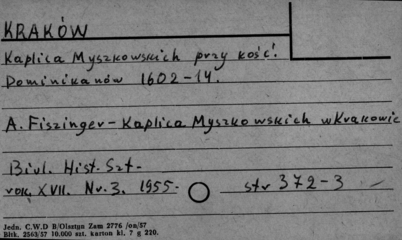 KRAKÓW
Kaplica Myszkowskich przy kość.
Dominikanów 1602-14.
A. Fiszinger - Kaplica Myszkowskich w Krakowie
Biul. Hist. Szt.
rok XVII. Nr. 3. 1955. str 372-3
Jedn. C.W.D R/Olsztyn Zam 2776 /on/57
Bltk. 2563/57 10.000 szt. karton kl. 7 g 220.